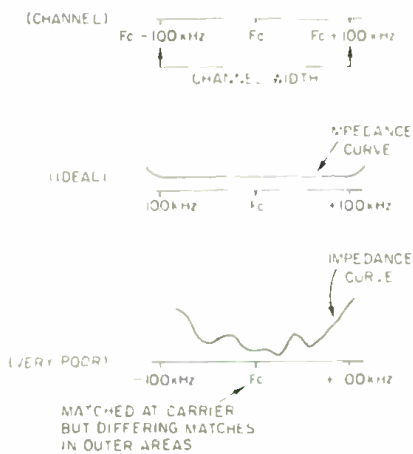 (CHANNEL)
Fc -100 KHZ Fc Fc +100 KHZ
CHANNEL WIDTH
IMPEDANCE
CURVE
(IDEAL)
100KHZ Fc +100KHZ
IMPEDANCE
CURVE
(VERY POOR)
-100KHZ Fc +100KHZ
MATCHED AT CARRIER
BUT DIFFERING MATCHES
IN OUTER AREAS